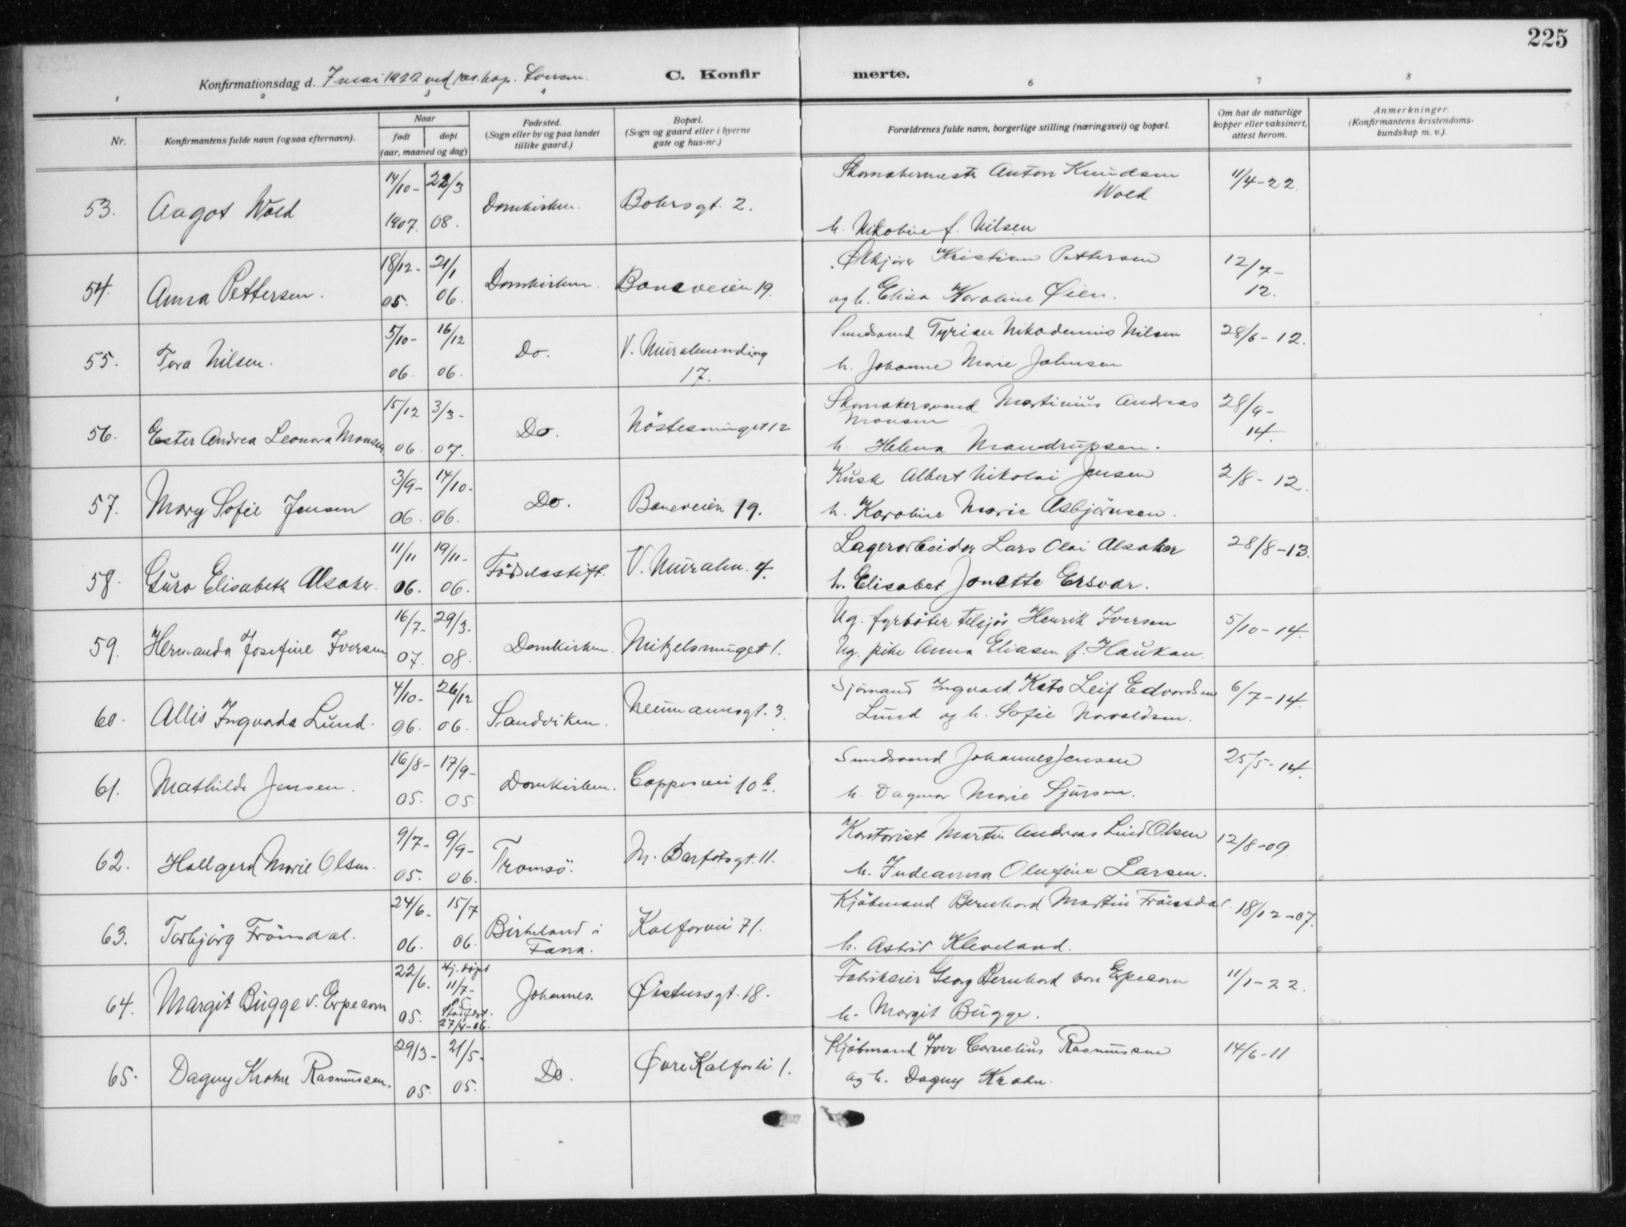 225
Konfirmationsdag d. 7 mai 1922 ved res. kap.
C. Konfirmerte.
1 2 3 4 6 7 8
Nr.
Konfirmantens fulde navn (ogsaa efternavn).
Naar
født
døpt
(aar, maaned og dag)
Fødested.
(Sogn eller by og paa landet
tillike gaard.)
Bopæl.
(Sogn og gaard eller i byerne
gate og hus-nr.)
Forældrenes fulde navn, borgerlige stilling (næringsvei) og bopæl.
Om hat de naturlige
kopper eller vaksinert,
attest herom.
Anmerkninger.
(Konfirmantens kristendoms-
kundskap m. v.).
53. Aagot Wold 14/10- 1907. 22/3 08. Domkirken. Bohrsgt. 2. Skomakermester Anton Knudsen
Wold
h. Nikoline f. Nilsen 11/4-22.
54. Anna Pettersen. 18/12- 05. 21/1 06. Domkirken. Baneveien 19. Kristian Pettersen
og h. Elisa Karoline Øien. 12/7-
12.
55. Tora Nilsen. 5/10- 06. 16/12 06. Do. V. Muralmending
17. Nikodemus Nilsen
h. Johanne Marie Johnsen 28/6-12.
56. Ester Andrea Leonora Monsen 15/12 06. 3/3- 07. Do. Nöstesmuget 12 Skomakersvend Martinius Andreas
Monsen
h. Helena Mandrupsen. 28/9-
14.
57. Mary Sofie Jensen 3/9- 06. 14/10- 06. Do. Baneveien 19. Kusk Albert Nikolai Jensen
h. Karoline Marie Asbjörnsen. 2/8-12.
58. Guro Elisabeth Alsaker. 11/11 06. 19/11- 06. Födselsstift. V. Muralm. 4. Lagerarbeider Lars Olai Alsaker
h. Elisabet Jonette Ersvær. 28/8-13.
59. Hermanda Josefine Iversen 16/7- 07. 29/3. 08. Domkirken. Mikkelsmuget 1. Ug. fyrböter Henrik Iversen
Ug. pike Anna Eliasen f. Haukan. 5/10-14.
60. Allis Ingvarda Lund. 4/10- 06. 26/12 06. Sandviken. Neumannsgt. 3. Sjömand Ingvald Kato Leif Edvardsen
Lund og h. Sofie Haraldsen. 6/7-14.
61. Mathilde Jensen. 16/8- 05. 17/9- 05 Domkirken. 10 b. Johannes Jensen
h. Dagmar Marie Sjursen. 25/5-14.
62. Hallgerd Marie Olsen. 9/7- 05. 9/9- 06. Tromsö. M. Barfotsgt. 11. Kontorist Martin Andreas Lind Olsen
h. Indeanna Olufine Larsen. 12/8-09
63. Torbjörg Fröinsdal. 24/6- 06. 15/7 06. Birkeland i
Fana. Kalfarvei 71. Kjöbmand Bernhard Martin Fröinsdal
h. Astrid Kleveland. 18/12-07.
64. Margit Bugge v. Erpecom 22/6. 05. Hj. döpt
11/7-
05
27/4-06. Johannes. Øistensgt. 18. Fabrikeier Georg Bernhard von Erpecom
h. Margit Bugge. 11/1-22.
65. Dagny Krohn Rasmussen. 29/3- 05. 21/5- 05. Do. Øvre Kalfarli 1. Kjöbmand Iver Cornelius Rasmussen
og h. Dagny Krohn. 14/6-11